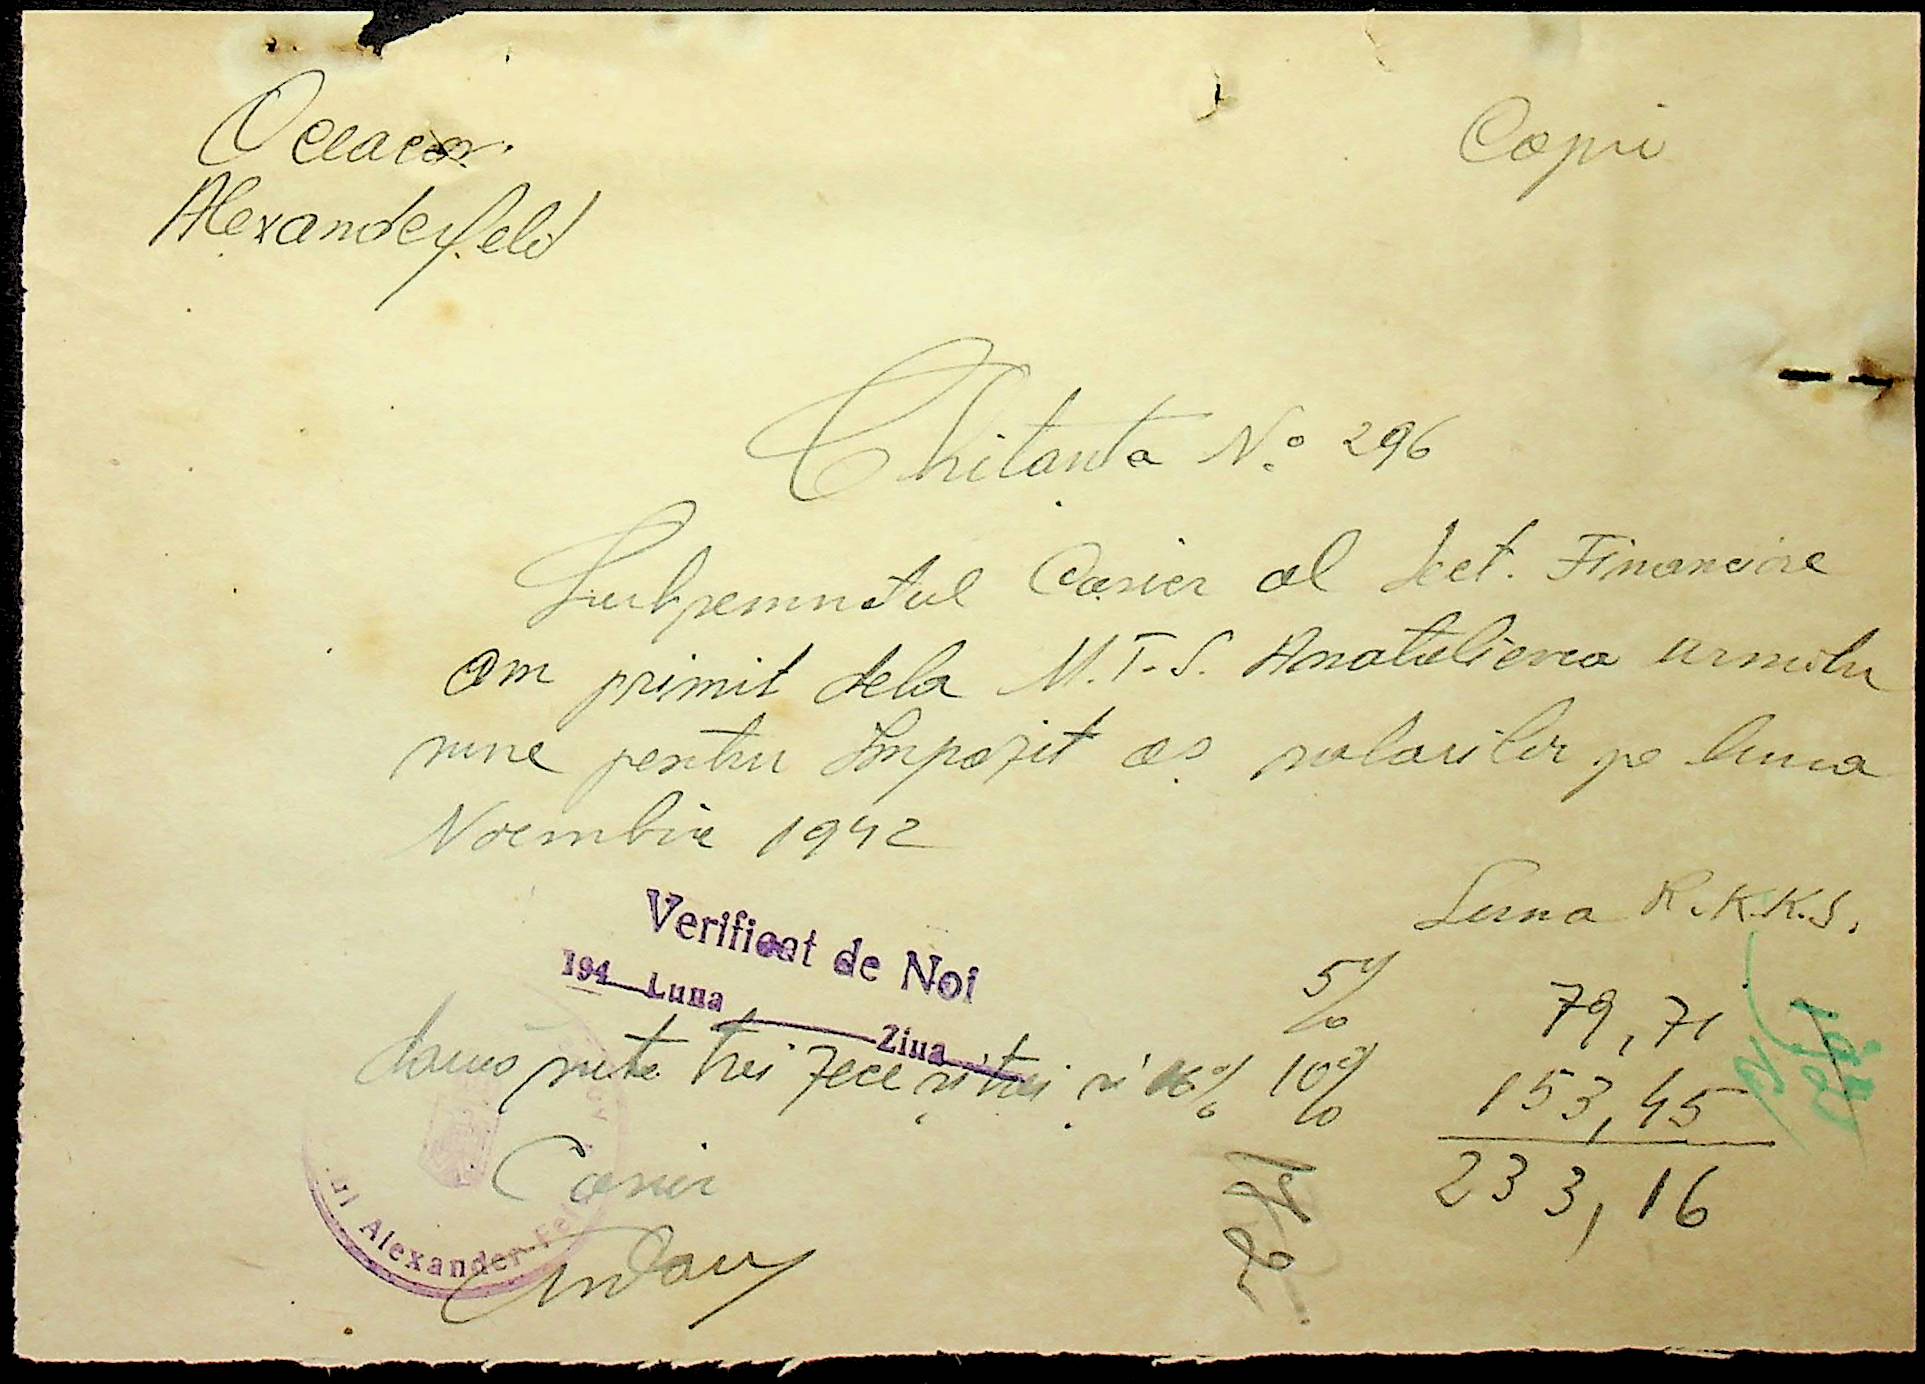 Copii
Alexanderfeld
Chitanta No 296
Subsemnatul Casier al Sect. Financiare
am primit dela M.T.S. Anatolievca urmatu
sume pentru Impozit as salarilor pe luna
Noembrie 1942
Suma R.K.K.S.
Verificat de Noi
194 Luna Ziua
5% 79,71
doua sute trei zece si trei si 16% 10% 153,45
233,16
Casier
Alexander Fel